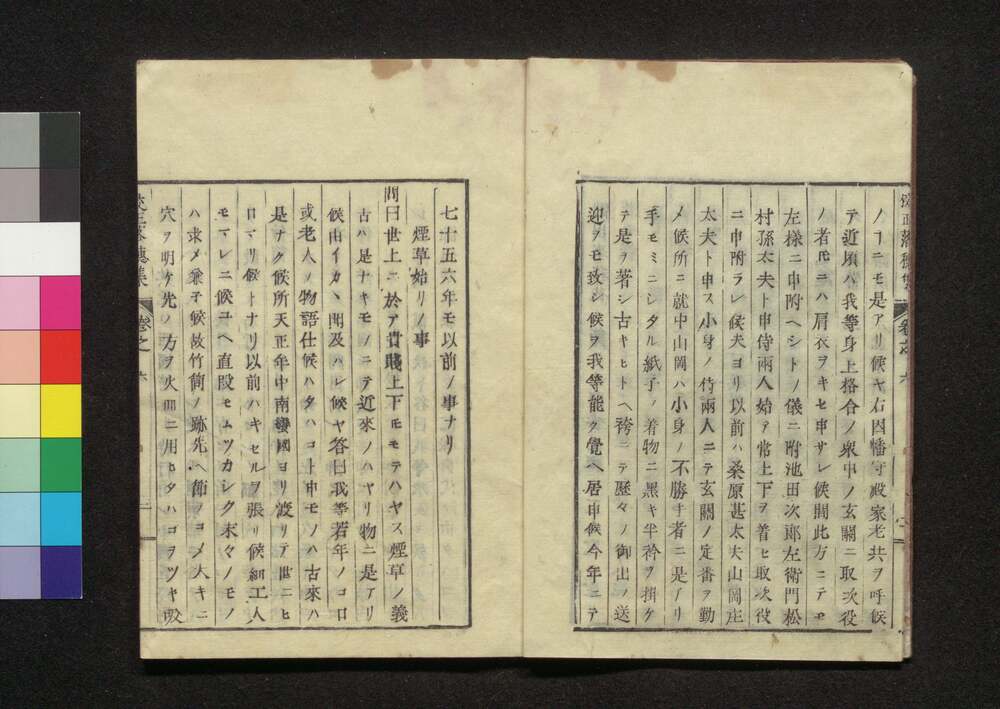 ノコニモ是アリ候ヤ右因幡守殿家老共ヲ呼候
テ近頃ハ我等身上格合ノ衆中ノ玄關ニ取次役
ノ者𪜈ニハ肩衣ヲキセ申サレ候間此方ニテモ
左樣ニ申附ヘシトノ儀ニ附池田次郎左衛門松
村孫太夫ト申侍兩人始テ常上下ヲ着ヒ取次役
ニ申附ラレ候夫ヨリ以前ハ桑原甚太夫山岡庄
太夫ト申ス小身ノ侍兩人ニテ玄關ノ定番ヲ勤
メ候所ニ就中山岡ハ小身ノ不勝手者ニ是アリ
手モミニシタル紙子ノ着物ニ黑キ半衿ヲ掛ケ
テ是ヲ著シ古キヒトヘ袴ニテ歷々ノ御出ノ送
迎ヲモ致シ候ヲ我等能ク覺ヘ居申候今年ニテ
七十五六年モ以前ノ事ナリ
煙草始リノ事
問曰世上ニ於テ貴賤上下モモテハヤス煙草ノ義
古ハ是ナキモノニテ近來ノハヤリ物ニ是アリ
候由イカヽ聞及ハレ候ヤ答曰我等若年ノコロ
或老人ノ物語仕候ハタハコト申モノハ古來ハ
是ナク候所天正年中南蠻國ヨリ渡リテ世ニヒ
ロマリ候トナリ以前ハキセルヲ張リ候細工人
モマレニ候ユヘ直段モムツカシク末々ノモノ
ハ求メ兼子候故竹筒ノ跡先ヘ節ヲコメ大キニ
穴ヲ明ケ先ノ方ヲ火皿ニ用ヒタハコヲツヤ